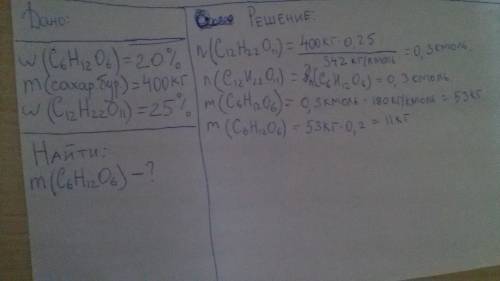 Дано:
w(C₆H₁₂O₆)=20%
m(сахар.бур)=400кг
w(C₁₂H₂₂O₁₁)=25%
Найти:
m(C₆H₁₂O₆)-?
Решение:
n(C₁₂H₂₂O₁₁)= 400кг·0,25 / 342 кг/кмоль =0,3кмоль
n(C₁₂H₂₂O₁₁)= n(C₆H₁₂O₆)=0,3кмоль
m(C₆H₁₂O₆)=0,3кмоль·180кг/кмоль=53кг
m(C₆H₁₂O₆)=53кг·0,2=11кг